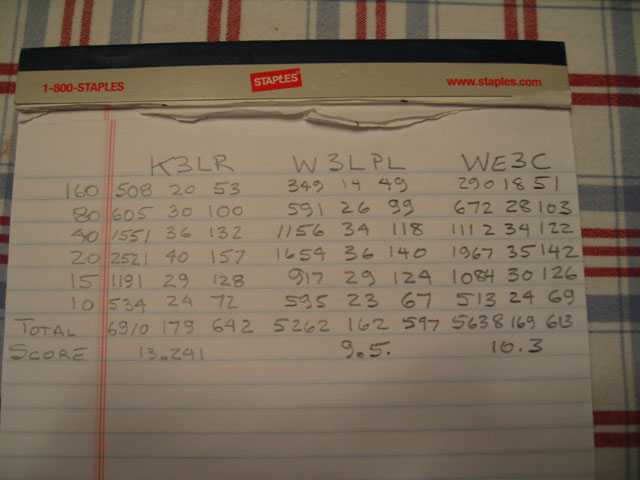 1-800-STAPLES STAPLES www.staples.com
K3LR W3LPL WE3C
160 508 20 53 349 14 49 290 18 51
80 605 30 100 591 26 99 672 28 103
40 1551 36 132 1156 34 118 1112 34 122
20 2521 40 157 1654 36 140 1967 35 142
15 1191 29 128 917 29 124 1084 30 126
10 534 24 72 595 23 67 513 24 69
TOTAL 6910 179 642 5262 162 597 5638 169 613
SCORE 13.241 9.5. 10.3